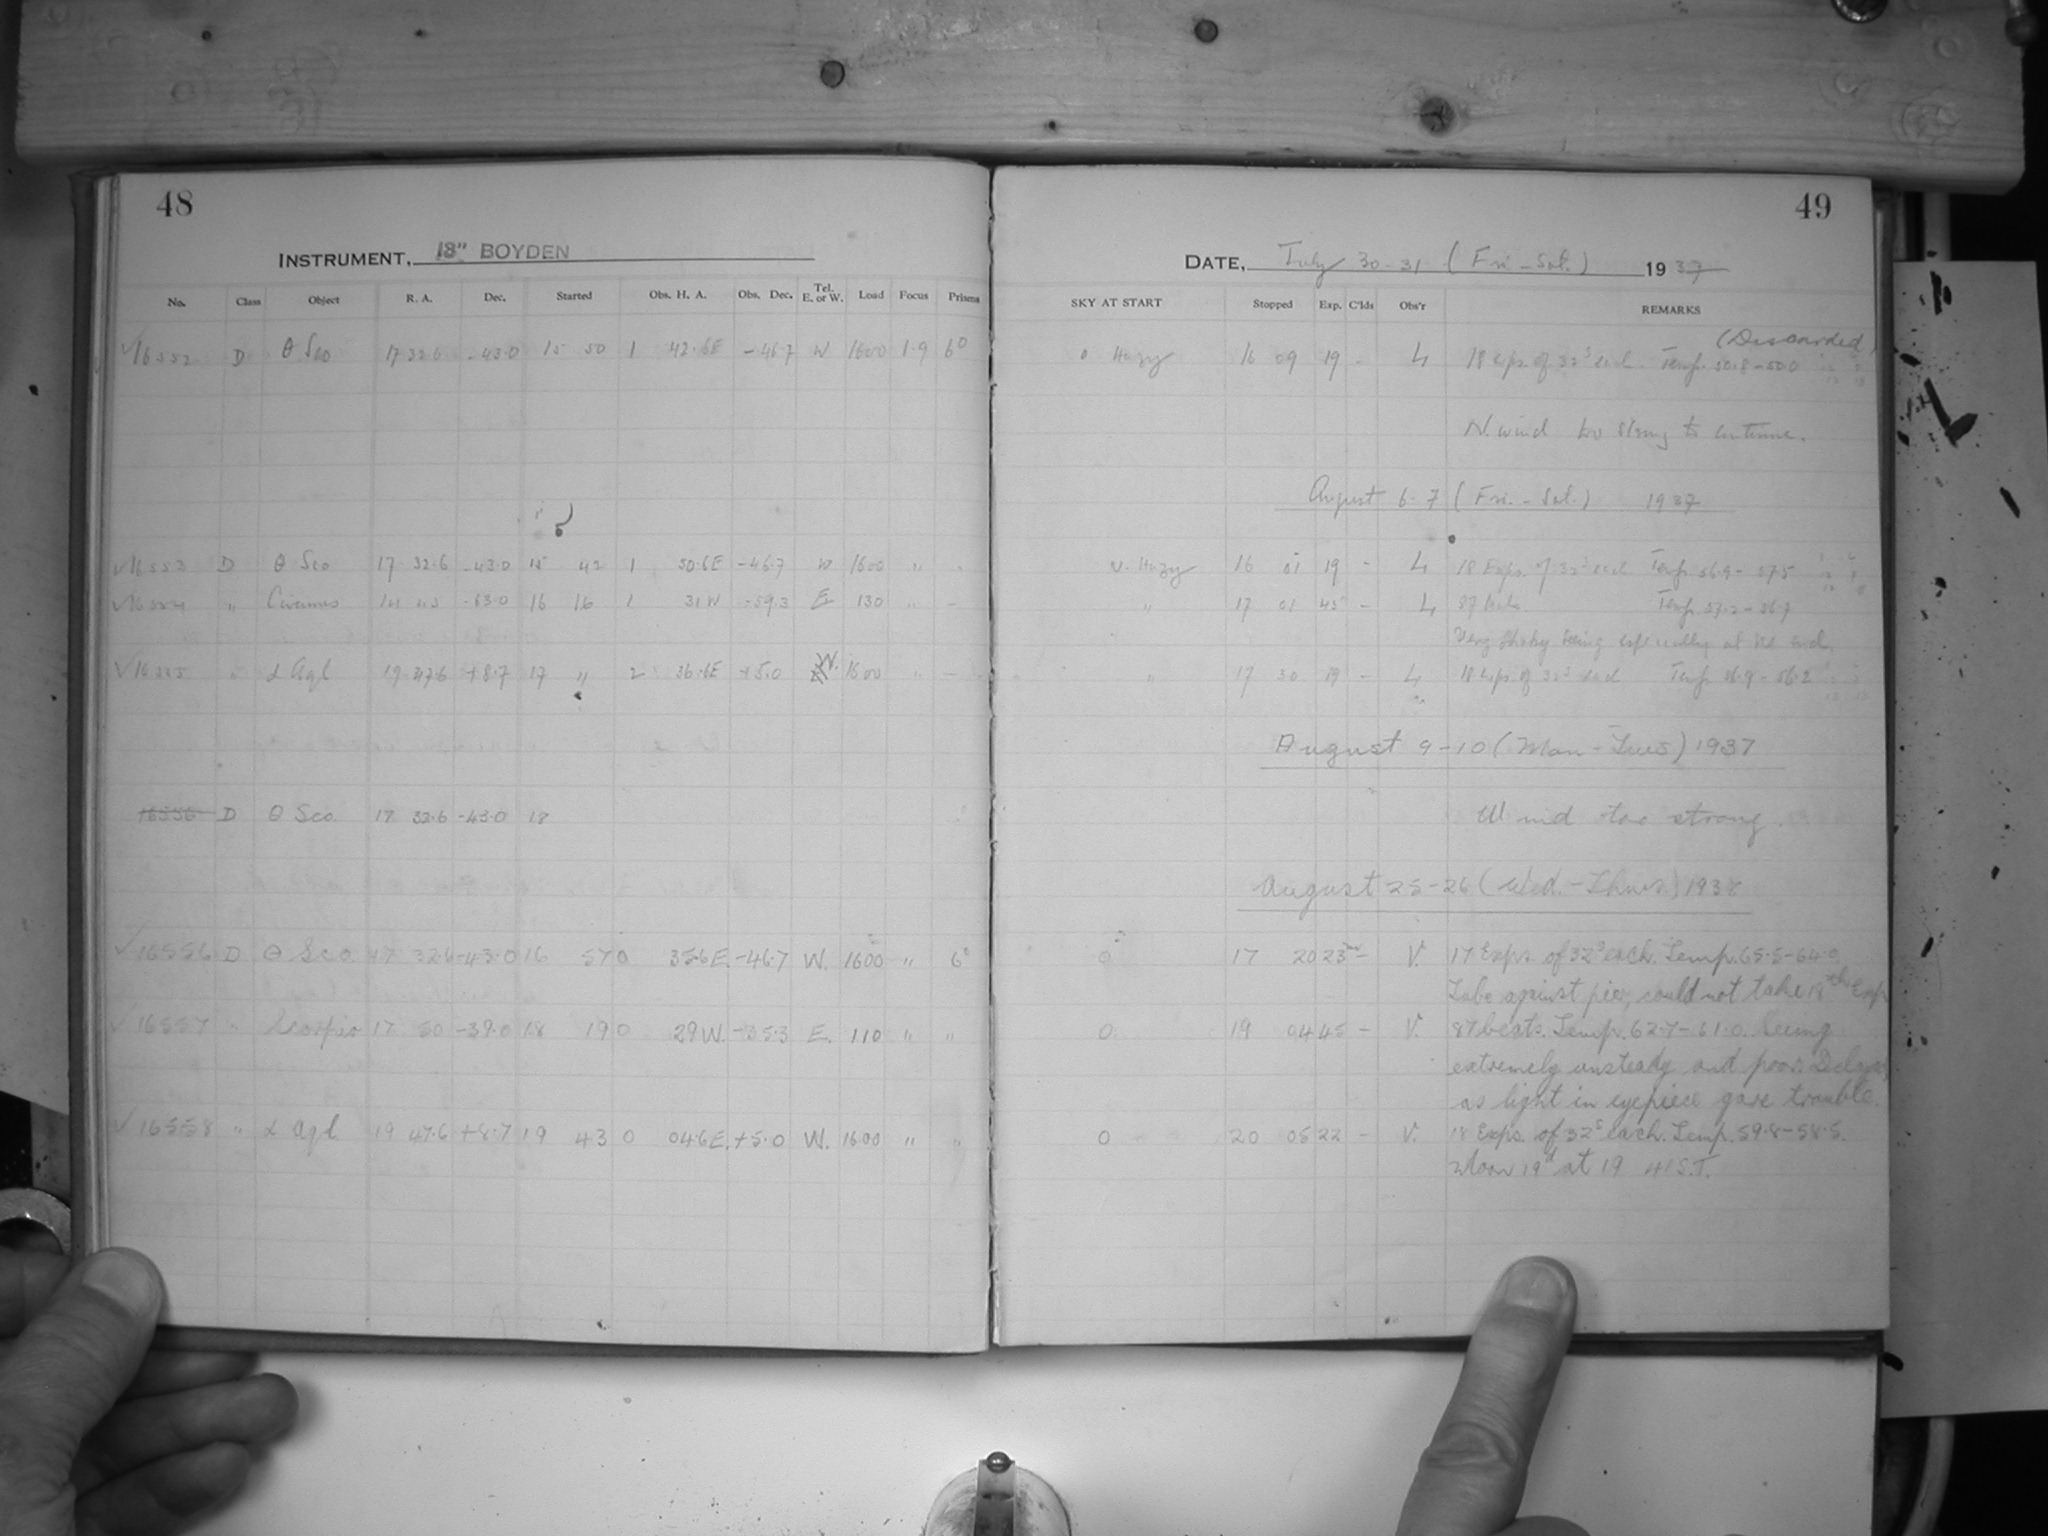 48
INSTRUMENT, 18" BOYDEN
No. Class Object R. A. Dec. Started Obs. H. A. Obs. Dec. Tel. E. or W. Load Focus Prisms
√16552 D θ Sco 17 32.6 -43.0 15 50 1 42.6E -46.7 W 1600 1.9 6°
√16553 D θ Sco 17 32.6 -43.0 15 42 1 50.6E -46.7 W 1600 " -
√16554 " Circinus 14 45 -63.0 16 16 1 31W -59.3 E 130 " -
√16555 " α Aql 19 47.6 +8.7 17 " 2 36.6E +5.0 W. 1600 " -
16556 D θ Sco. 17 32.6 -43.0 18
√16556 D θ Sco. 17 32.6 -43.0 16 57 0 35.6E. -46.7 W. 1600 " 6°
√16557 " Scorpio 17 50 -39.0 18 19 0 29W. -35.3 E. 110 " "
√16558 " α Aql 19 47.6 +8.7 19 43 0 04.6E. +5.0 W. 1600 " "
49
DATE, July 30-31 (Fri-Sat.) 1937
SKY AT START Stopped Exp. C'lds Obs'r REMARKS
(Discarded)
0 Hazy 16 09 19 - L 18 Exps. of 32s each. Temp. 50.8-50.0
N. wind too strong to continue.
August 6-7 (Fri.-Sat.) 1937
v. Hazy 16 01 19 - L 18 Exps. of 32s each Temp. 56.9-57.5
" 17 01 45 - L 87 beats. Temp. 57.2-56.9
Very shaky seeing especially at the end.
" 17 30 19 - L 18 Exps of 32s each Temp. 56.9-56.2
August 9-10 (Mon-Tues) 1937
Wind too strong.
August 25-26 (Wed.-Thurs.) 1937
0 17 20 23 - V. 17 Exps. of 32s each. Temp. 65.5-64.0
Tube against pier, could not take 18th Exp
0. 19 04 45 - V. 87 beats. Temp. 62.7-61.0. Seeing
extremely unsteady and poor. Delay
as light in eyepiece gave trouble.
0 20 05 22 - V. 18 Exps. of 32s each. Temp. 59.8-58.5.
Moon 19d at 19 41 S.T.